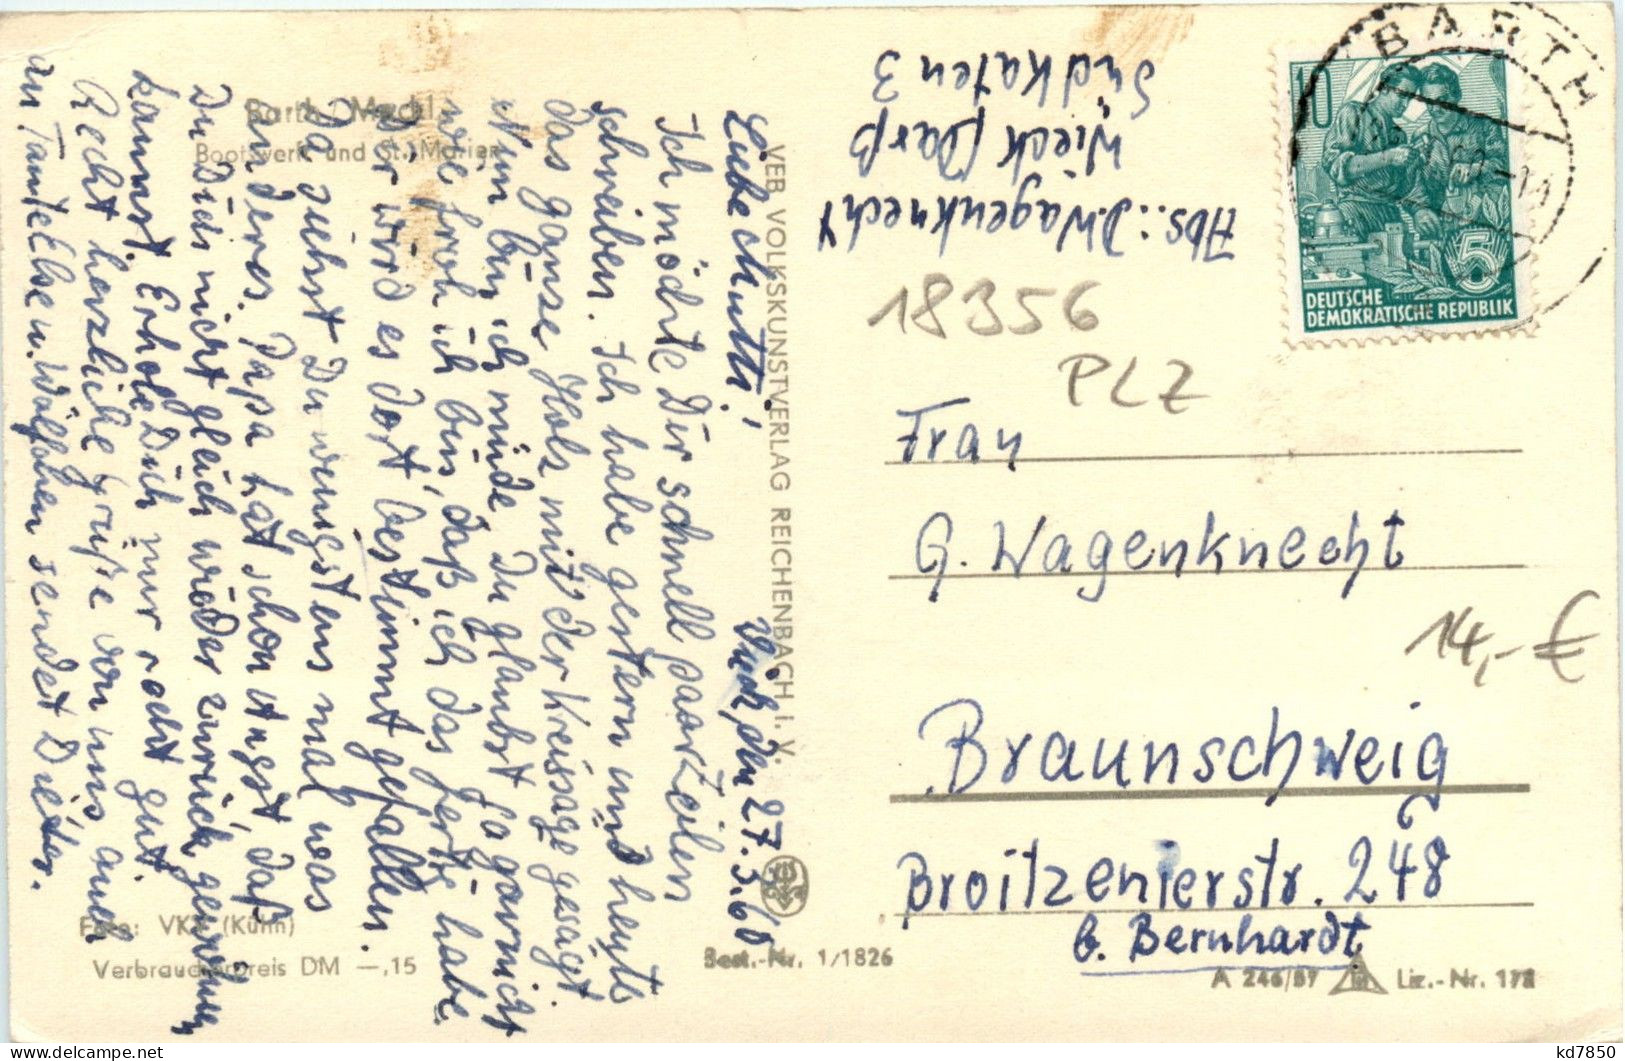 Barth / Meckl.
Bootswerft und St. Marien
Wieck, den 27.3.60
Liebe Mutti!
Ich möchte Dir schnell paar Zeilen
schreiben. Ich habe gestern und heute
das ganze Holz mit der Kreissäge gesägt.
Nun bin ich müde. Du glaubst ja garnicht
wie froh ich bin, daß ich das fertig habe.
Dir wird es dort bestimmt gefallen.
Da siehst Du wenigstens mal was
anderes. Papa hat schon Angst, daß
Du Dich nicht gleich wieder zurück gewöhnen
kannst. Erhole Dich nur recht gut.
Recht herzliche Grüße von uns auch
an Tante Else u. Wölfchen sendet Dieter.
Foto: VKV (Kühn)
Verbraucherpreis DM —,15
VEB VOLKSKUNSTVERLAG REICHENBACH I. V.
Best.-Nr. 1/1826
Abs.: D. Wagenknecht
Wieck / Darß
Südkaten 3
BARTH
10
5
DEUTSCHE
DEMOKRATISCHE REPUBLIK
18356
PLZ
Frau
G. Wagenknecht
14,- €
Braunschweig
Broitzenierstr. 248
b. Bernhardt
A 246/57 Liz.-Nr. 178
kd7850